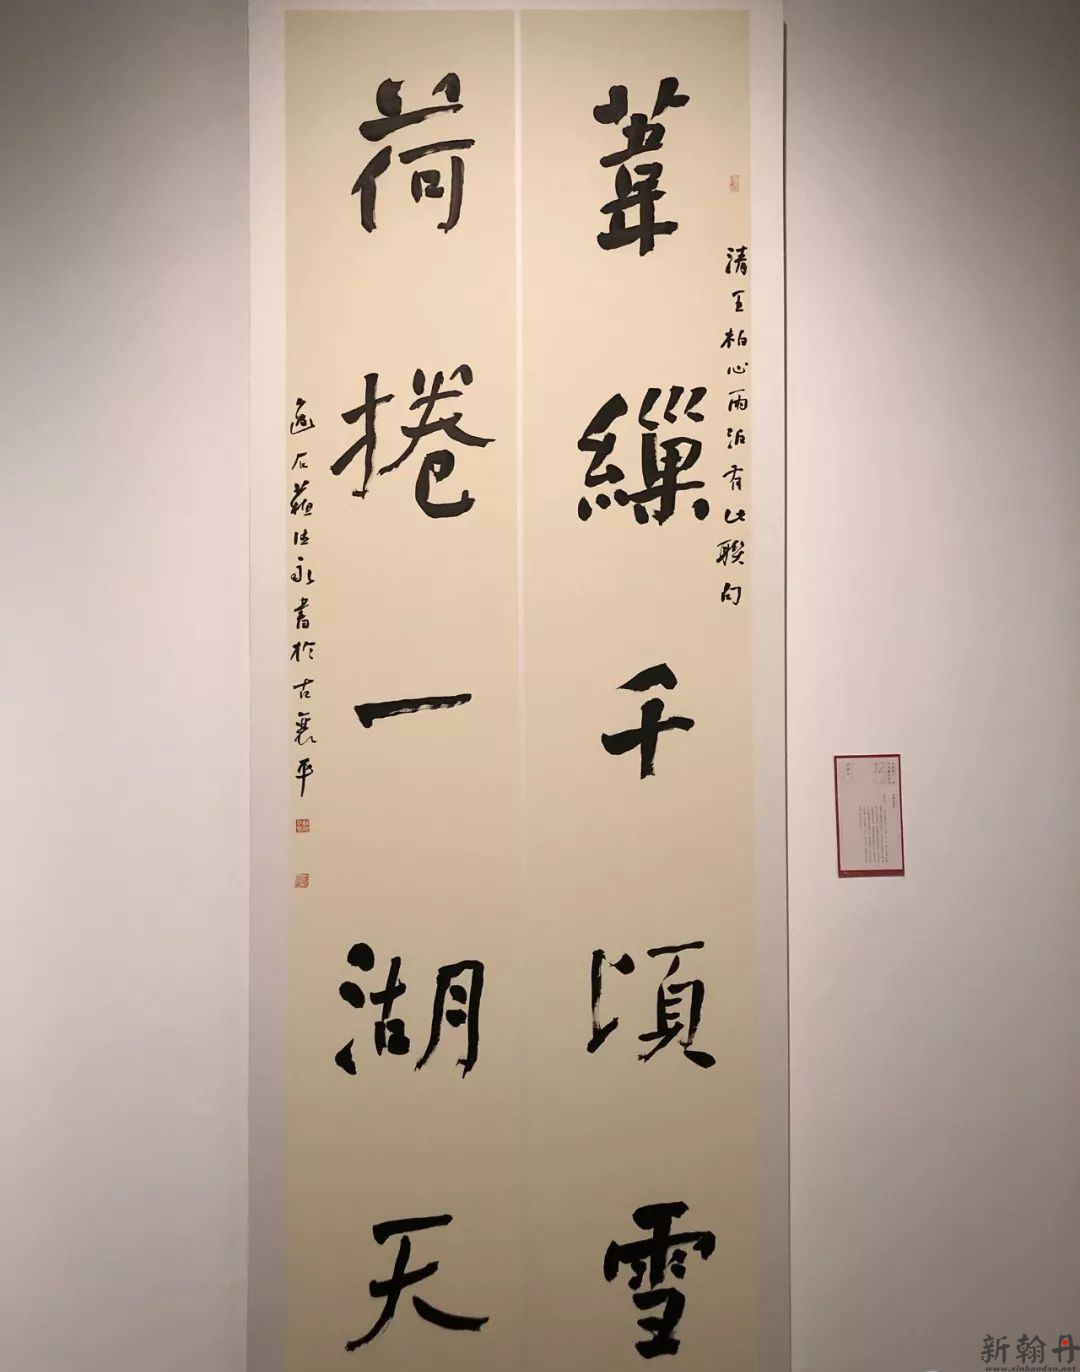 葦繅千頃雪
清王柏心雨泊有此聯句
荷捲一湖天
逸石蘇德永書於古襄平
新翰丹
www.xinhandan.net